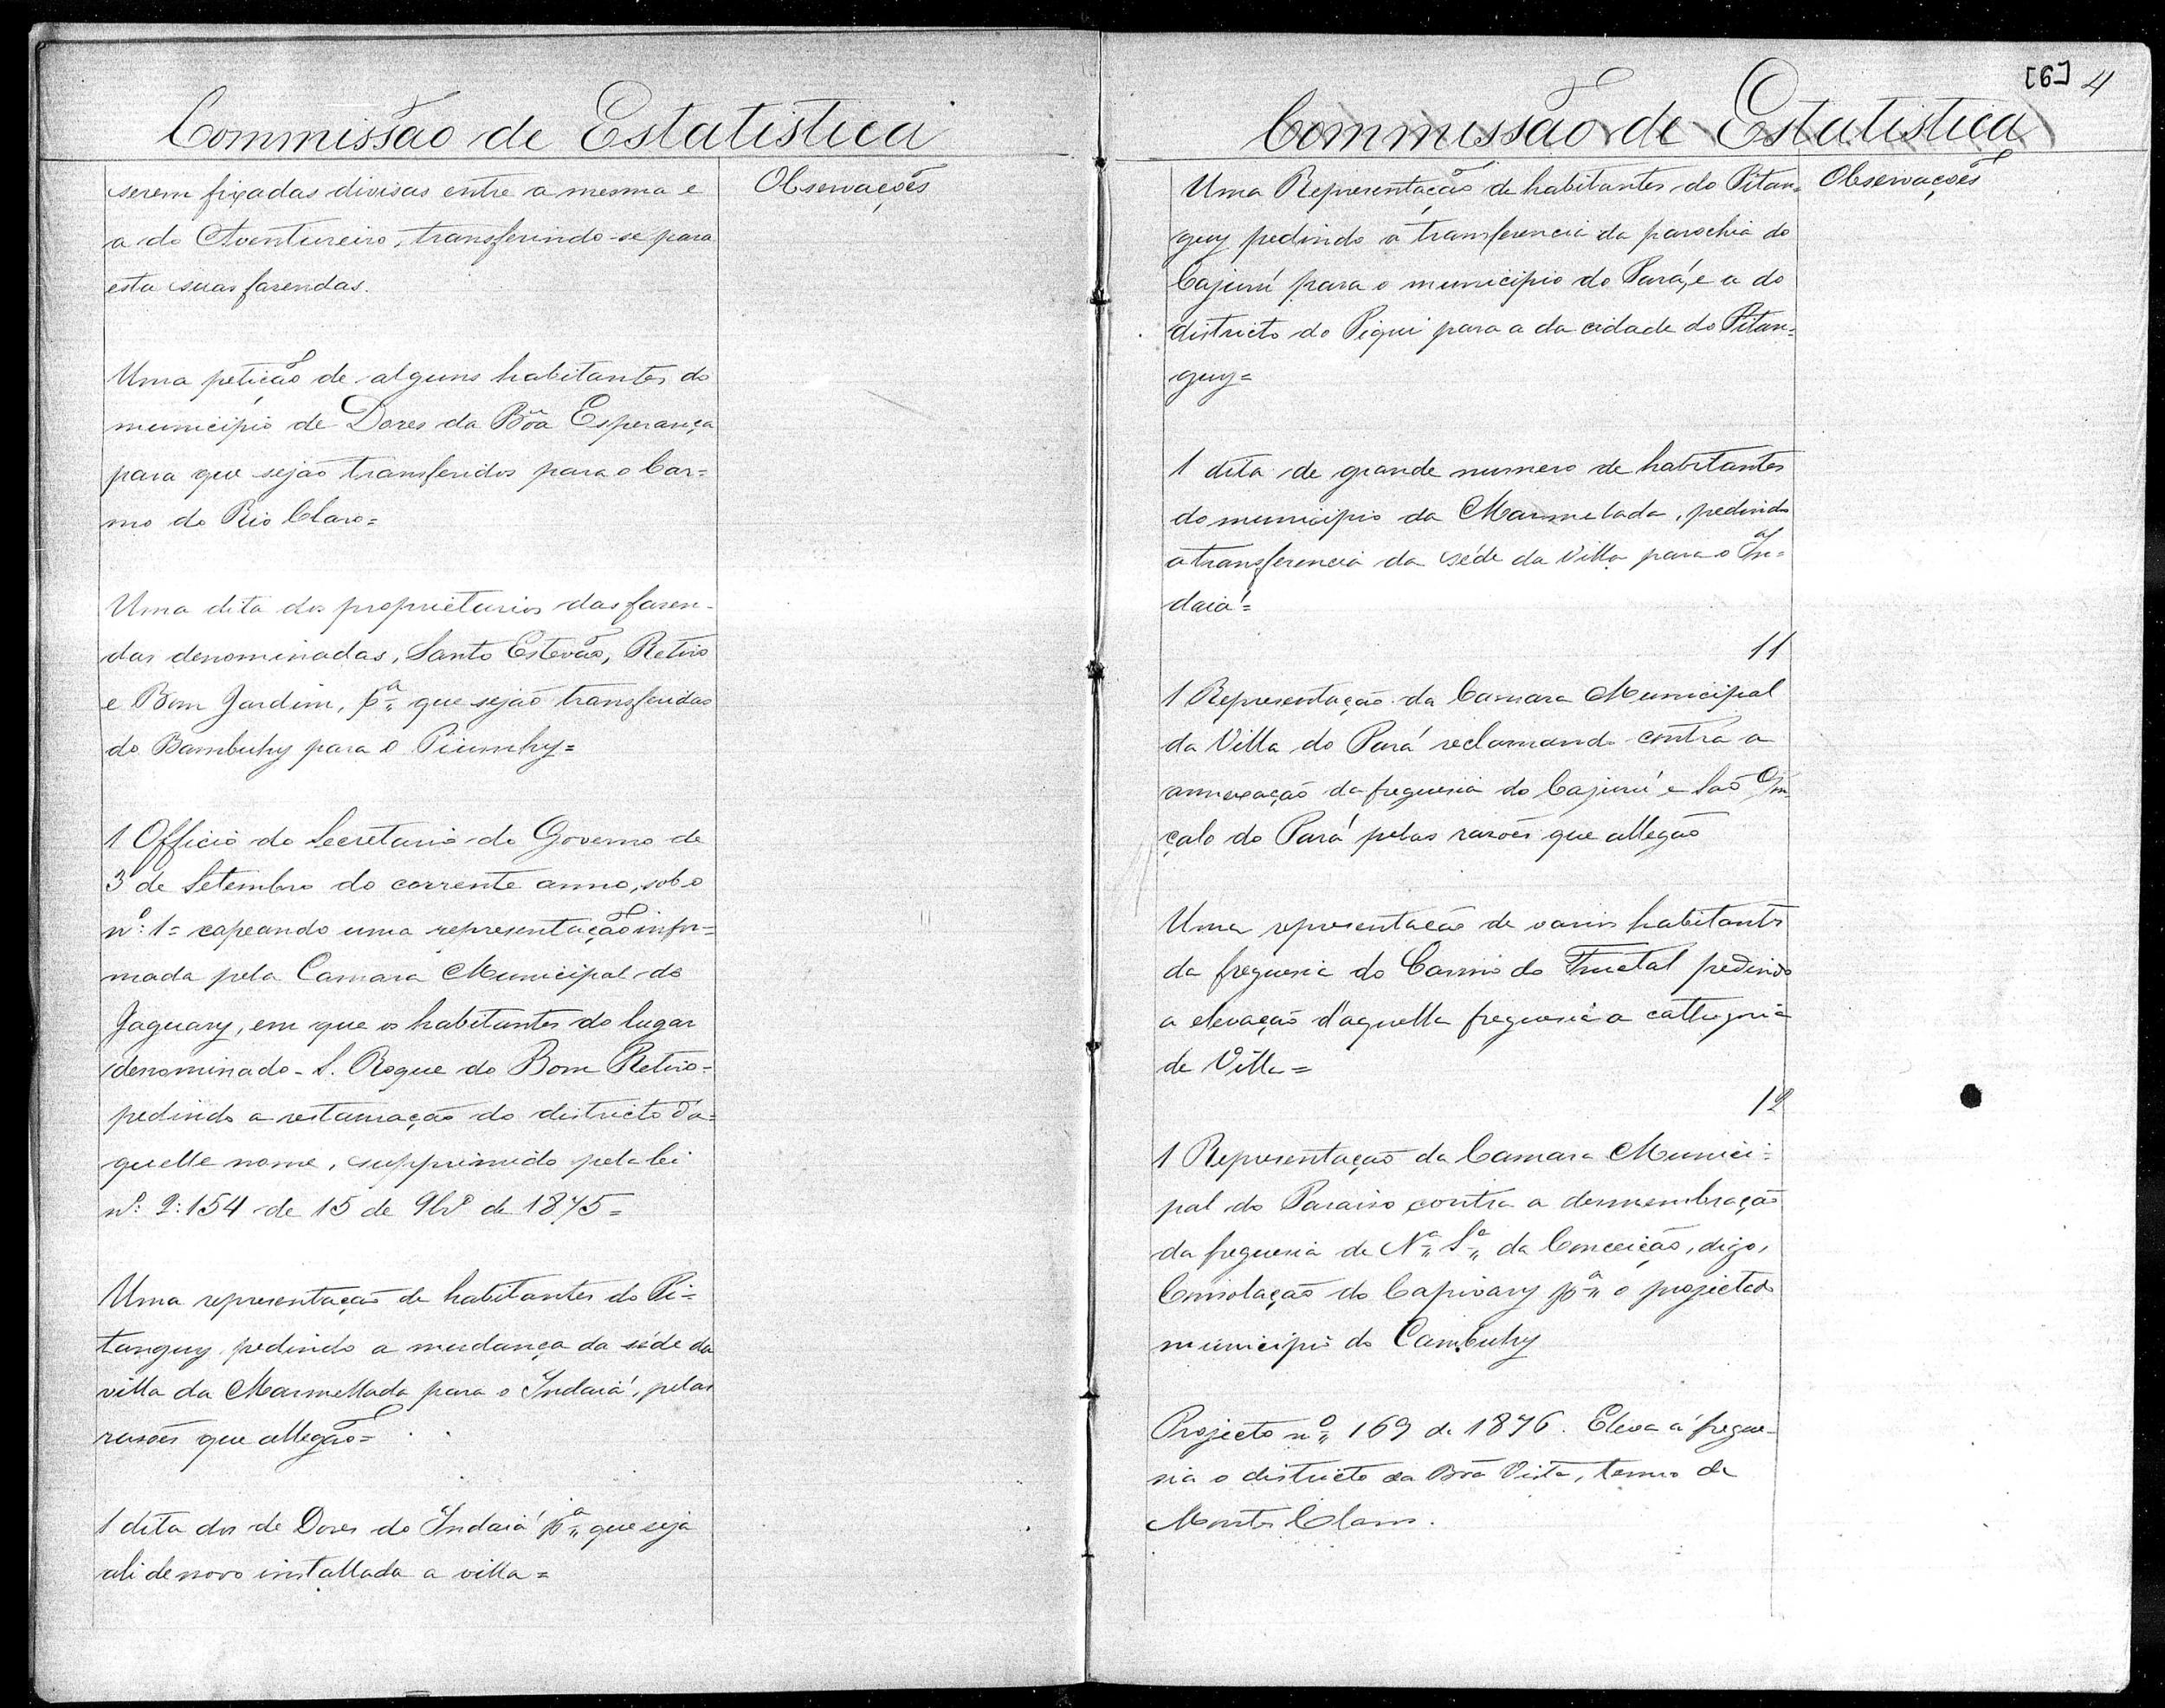 Commissão de Estatistica
serem fixadas divisas entre a mesma e
a do Aventureiro, transferindo-se para
esta suas fasendas.
Observações
Uma petição de alguns habitantes do
municipio de Dores da Bôa Esperança
para que sejão transferidos para o Car=
mo do Rio Claro=
Uma dita dos proprietarios das fasen-
das denominadas, Santo Estevão, Retiro
e Bom Jardim, pª que sejão transferidas
do Bambuhy para o Piumhy=
1 Officio do Secretario do Governo de
3 de Setembro do corrente anno, sob o
nº: 1= capeando uma representação infor=
mada pela Camara Municipal do
Jaguary, em que os habitantes do lugar
denominado - S. Roque do Bom Retiro=
pedindo a restauração do districto d'a=
quelle nome, supprimido pela lei
nº: 2:154 de 15 de 9bº de 1875=
Uma representação de habitantes do Pi=
tanguy pedindo a mudança da séde da
villa da Marmellada para o Indaiá, pelas
rasões que allegão=
1 dita dos de Dores do Indaiá pª que seja
ali de novo installada a villa=
[6] 4
Commissão de Estatistica
Uma Representação de habitantes do Pitan=
guy pedindo a transferencia da parochia do
Cajurú para o municipio do Pará, e a do
districto do Pequi para a da cidade do Pitan=
guy=
Observações
1 dita de grande numero de habitantes
do municipio da Marmelada, pedindo
a transferencia da séde da Villa para o In=
daiá=
11
1 Representação da Camara Municipal
da Villa do Pará reclamando contra a
annexação da freguesia do Cajurú e São Gon
çalo do Pará pelas rasões que allegão
Uma representação de varios habitantes
da freguesia do Carmo do Fructal pedindo
a elevação d'aquella freguesia a cathegoria
de Villa=
12
1 Representação da Camara Munici=
pal do Paraiso contra a desmembração
da freguesia de Nª Sª da Conceição, digo,
Consolação do Capivary pª o projectado
municipio do Cambuhy
Projecto nº 169 de 1876. Eleva á fregue-
sia o districto da Bôa Vista, termo de
Montes Claros.